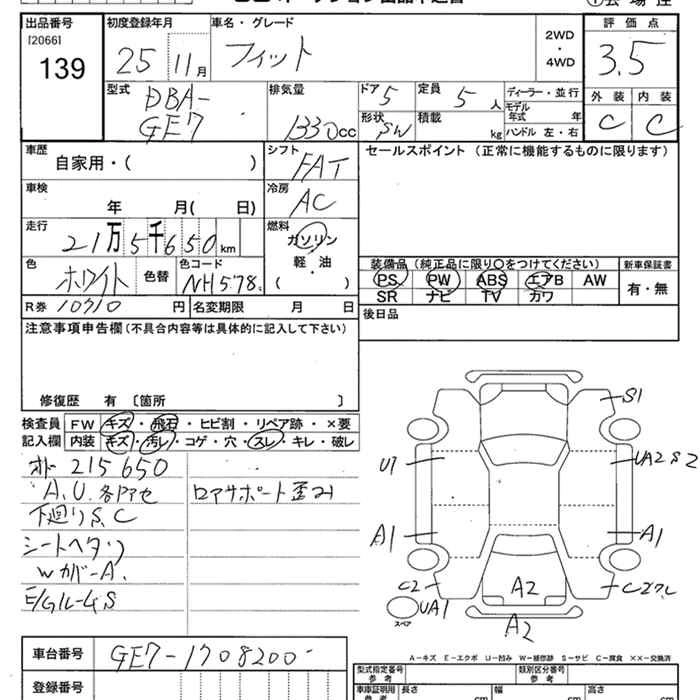 出品番号
[2066]
139
初度登録年月
25 11月
車名・グレード
フィット
2WD
・
4WD
評価点
3.5
外装 内装
C C
型式
DBA-
GE7
排気量
1330cc
ドア 5
定員 5人
形状 SW
積載 kg
ディーラー・並行
モデル年式 年
ハンドル 左・右
車歴
自家用・( )
シフト
FAT
セールスポイント (正常に機能するものに限ります)
車検
年 月( 日)
冷房
AC
走行
21万5千650km
燃料
ガソリン
軽・油
( )
色
ホワイト
色替
色コード
NH578
装備品 (純正品に限り○をつけてください)
PS PW ABS エアB AW
SR ナビ TV カワ
新車保証書
有・無
R券 10710円
名変期限 月 日
後日品
注意事項申告欄 (不具合内容等は具体的に記入して下さい)
修復歴 有 〔箇所 〕
検査員記入欄
FW キズ・飛石・ヒビ割・リペア跡・×要
内装 キズ・汚レ・コゲ・穴・スレ・キレ・破レ
オド 215650
A.U.各アセ
下廻りS.C
シートヘタリ
Wカバ-A.
E/Gルーム S
ロアサポート歪み
S1
U1
UA2 S2
A1
A1
C2
UA1
スペア
A2
A2
A-キズ E-エクボ U-凹み W-補修跡 S-サビ C-腐食 ××-交換済
車台番号
GE7-1708200
登録番号
型式指定番号
参考
類別区分番号
参考
車庫証明用
参考
長さ cm
幅 cm
高さ cm